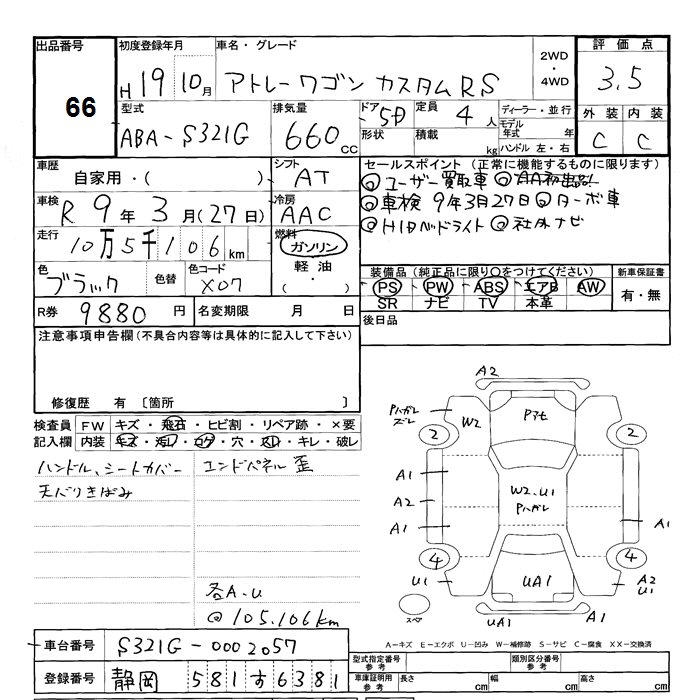 出品番号
66
初度登録年月
H 19 10月
車名・グレード
アトレーワゴン カスタムRS
2WD
・
4WD
評価点
3.5
型式
ABA-S321G
排気量
660 cc
ドア 5D
形状
定員 4 人
積載 kg
ディーラー・並行
モデル年式 年
ハンドル 左・右
外装 内装
C C
車歴
自家用・( )
シフト
AT
車検
R 9年 3月(27日)
冷房
AAC
走行
10万5千106 km
燃料
ガソリン
軽油
色
ブラック
色替
色コード
X07
R券 9880 円
名変期限 月 日
セールスポイント(正常に機能するものに限ります)
◎ユーザー買取車 ◎AA初出品
◎車検 9年3月27日 ◎ターボ車
◎HIDヘッドライト ◎社外ナビ
装備品(純正品に限り○をつけてください)
PS PW ABS エアB AW
SR ナビ TV 本革
新車保証書
有・無
後日品
注意事項申告欄(不具合内容等は具体的に記入して下さい)
修復歴 有 〔箇所 〕
検査員 FW キズ・飛石・ヒビ割・リペア跡・×要
記入欄 内装 キズ・汚レ・コゲ・穴・スレ・キレ・破レ
ハンドル、シートカバー
天バリきばみ
エンドパネル歪
各A.U
@105.106km
A2
Pハガレ
ズレ
W2
Pアセ
2
2
A1
A2
A1
W2.U1
Pハガレ
A1
4
4
U1
UA1
A2
U1
スペア
UA1
A1
A-キズ E-エクボ U-凹み W-補修跡 S-サビ C-腐食 XX-交換済
車台番号 S321G-0002057
登録番号 静岡 581 す 6381
型式指定番号
参考
類別区分番号
参考
車庫証明用
参考
長さ cm
幅 cm
高さ cm